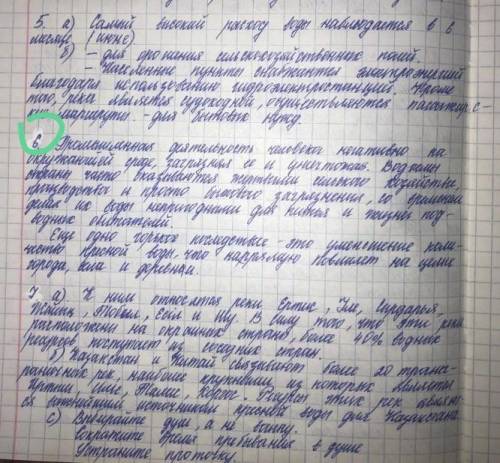 5. а) Самый высокий расход воды наблюдается в 6
месяце (июне)
б) – для орошения сельскохозяйственных полей.
– Населенные пункты снабжаются электроэнергией
благодаря использованию гидроэлектростанций. Кроме
того, река является судоходной, осуществляются пассажирс-
кие маршруты. – для бытовых нужд.
6. Промышленная деятельность человека негативно на
окружающей среде, загрязняя ее и уничтожая. Водоемы
страны часто оказываются жертвами сельского хозяйства,
производства и просто бытового загрязнения, со временем
делая их воды непригодными для питья и жизни под-
водных обитателей.
Еще одно горькое последствие – это уменьшение коли-
чества пресной воды, что напрямую повлияет на целые
города, села и деревни.
7. а) К ним относятся реки Ертис, Или, Сырдарья,
Жайык, Тобыл, Есил и Шу. В силу того, что эти реки
расположены на окраинах страны, более 40% водных
ресурсов, поступают из соседних стран.
б) Казахстан и Китай связывают более 20 трансг-
раничных рек, наиболее крупными из которых являются
Иртыш, Или, Талас, Коргос. Ресурсы этих рек являют-
ся важнейшим источником пресной воды для Казахстана.
с) Выбирайте душ, а не ванну.
Сократите время пребывания в душе
Устраните протечку